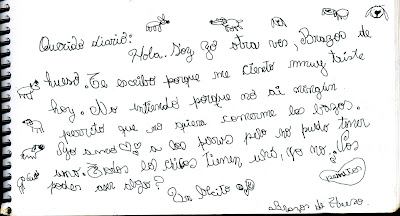 Querido diario:
Hola. Soy yo otra vos, Brazos de
hueso. Te escribo porque me ciento muy triste
hoy. No intiendo porque no ai ningún
perrito que no quiera comerme los bazos.
Yo amo a los perros pelo no pudo tener
uno. Todos los chicos tienen uno, yo no. Vos
podes aser algo?
Un besito
Brazos de Hueso.